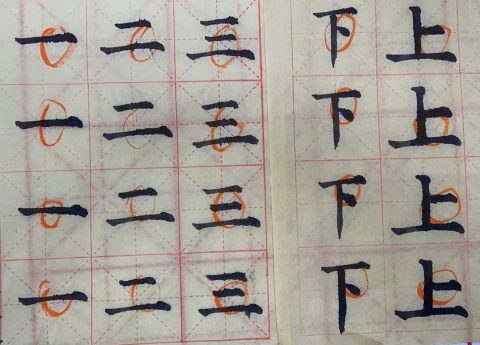 一 二 三 下 上
一 二 三 下 上
一 二 三 下 上
一 二 三 下 上